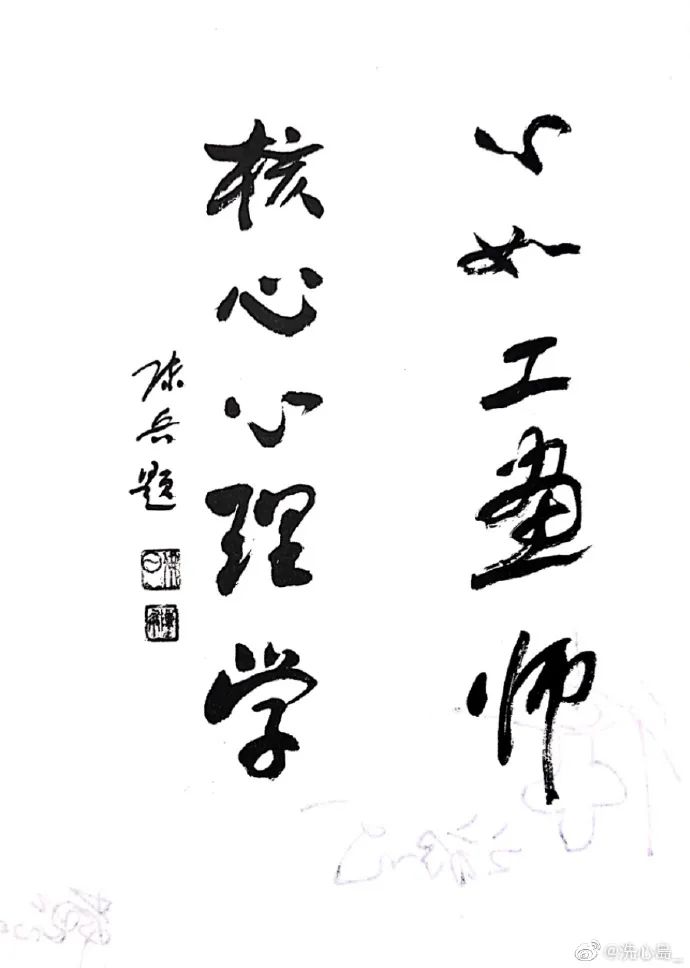 心如工画师
核心心理学
陈兵题
@洗心是_